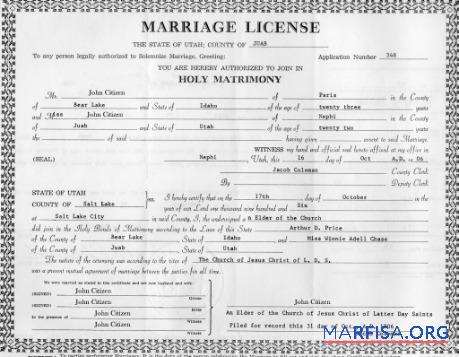 MARRIAGE LICENSE
THE STATE OF UTAH; COUNTY OF JUAB
To any person legally authorized to Solemnize Marriage, Greeting: Application Number 348
YOU ARE HEREBY AUTHORIZED TO JOIN IN
HOLY MATRIMONY
Mr. John Citizen of Paris in the County
of Bear Lake and State of Idaho of the age of twenty three years
and Miss John Citizen of Nephi in the County
of Juab and State of Utah of the age of twenty two years
the of said having given assent to said Marriage.
WITNESS my hand and official seal hereto affixed at my office in
(SEAL) Nephi, Utah, this 16 day of Oct A.D. 06
Jacob Coleman County Clerk
By Deputy Clerk
STATE OF UTAH
COUNTY OF Salt Lake ss. I hereby certify that on the 17th day of October in the
year of our Lord one thousand nine hundred and Six
at Salt Lake City in said County, I, the undersigned a n Elder of the Church
did join in the Holy Bonds of Matrimony according to the Laws of this State Arthur D. Price
of the County of Bear Lake State of Idaho and Miss Winnie Adell Chase
of the County of Juab State of Utah
The nature of the ceremony was according to the rites of The Church of Jesus Christ of L. D. S.
was a present mutual agreement of marriage between the parties for all time.
We were married as stated in the certificate and are now husband and wife.
(SIGNED) John Citizen
Groom
(SIGNED) John Citizen
Bride
John Citizen
In the presence of John Citizen
Witness
John Citizen
Witness
An Elder of the Church of Jesus Christ of Latter Day Saints
Filed for record this 31 day of Oct
MARFISA.ORG